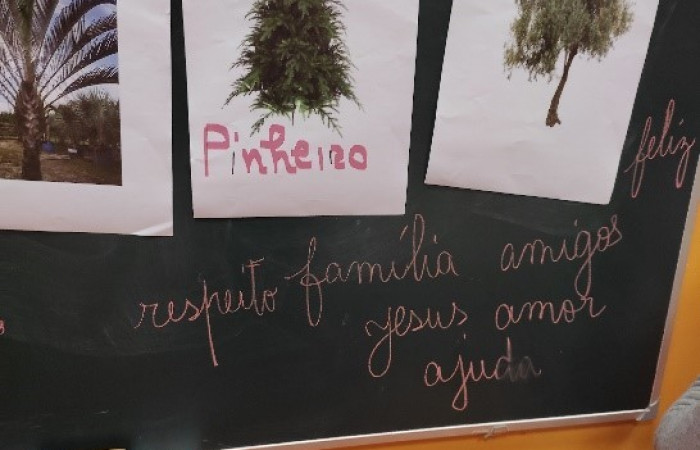 Pinheiro
feliz
respeito família amigos
jesus amor
ajuda